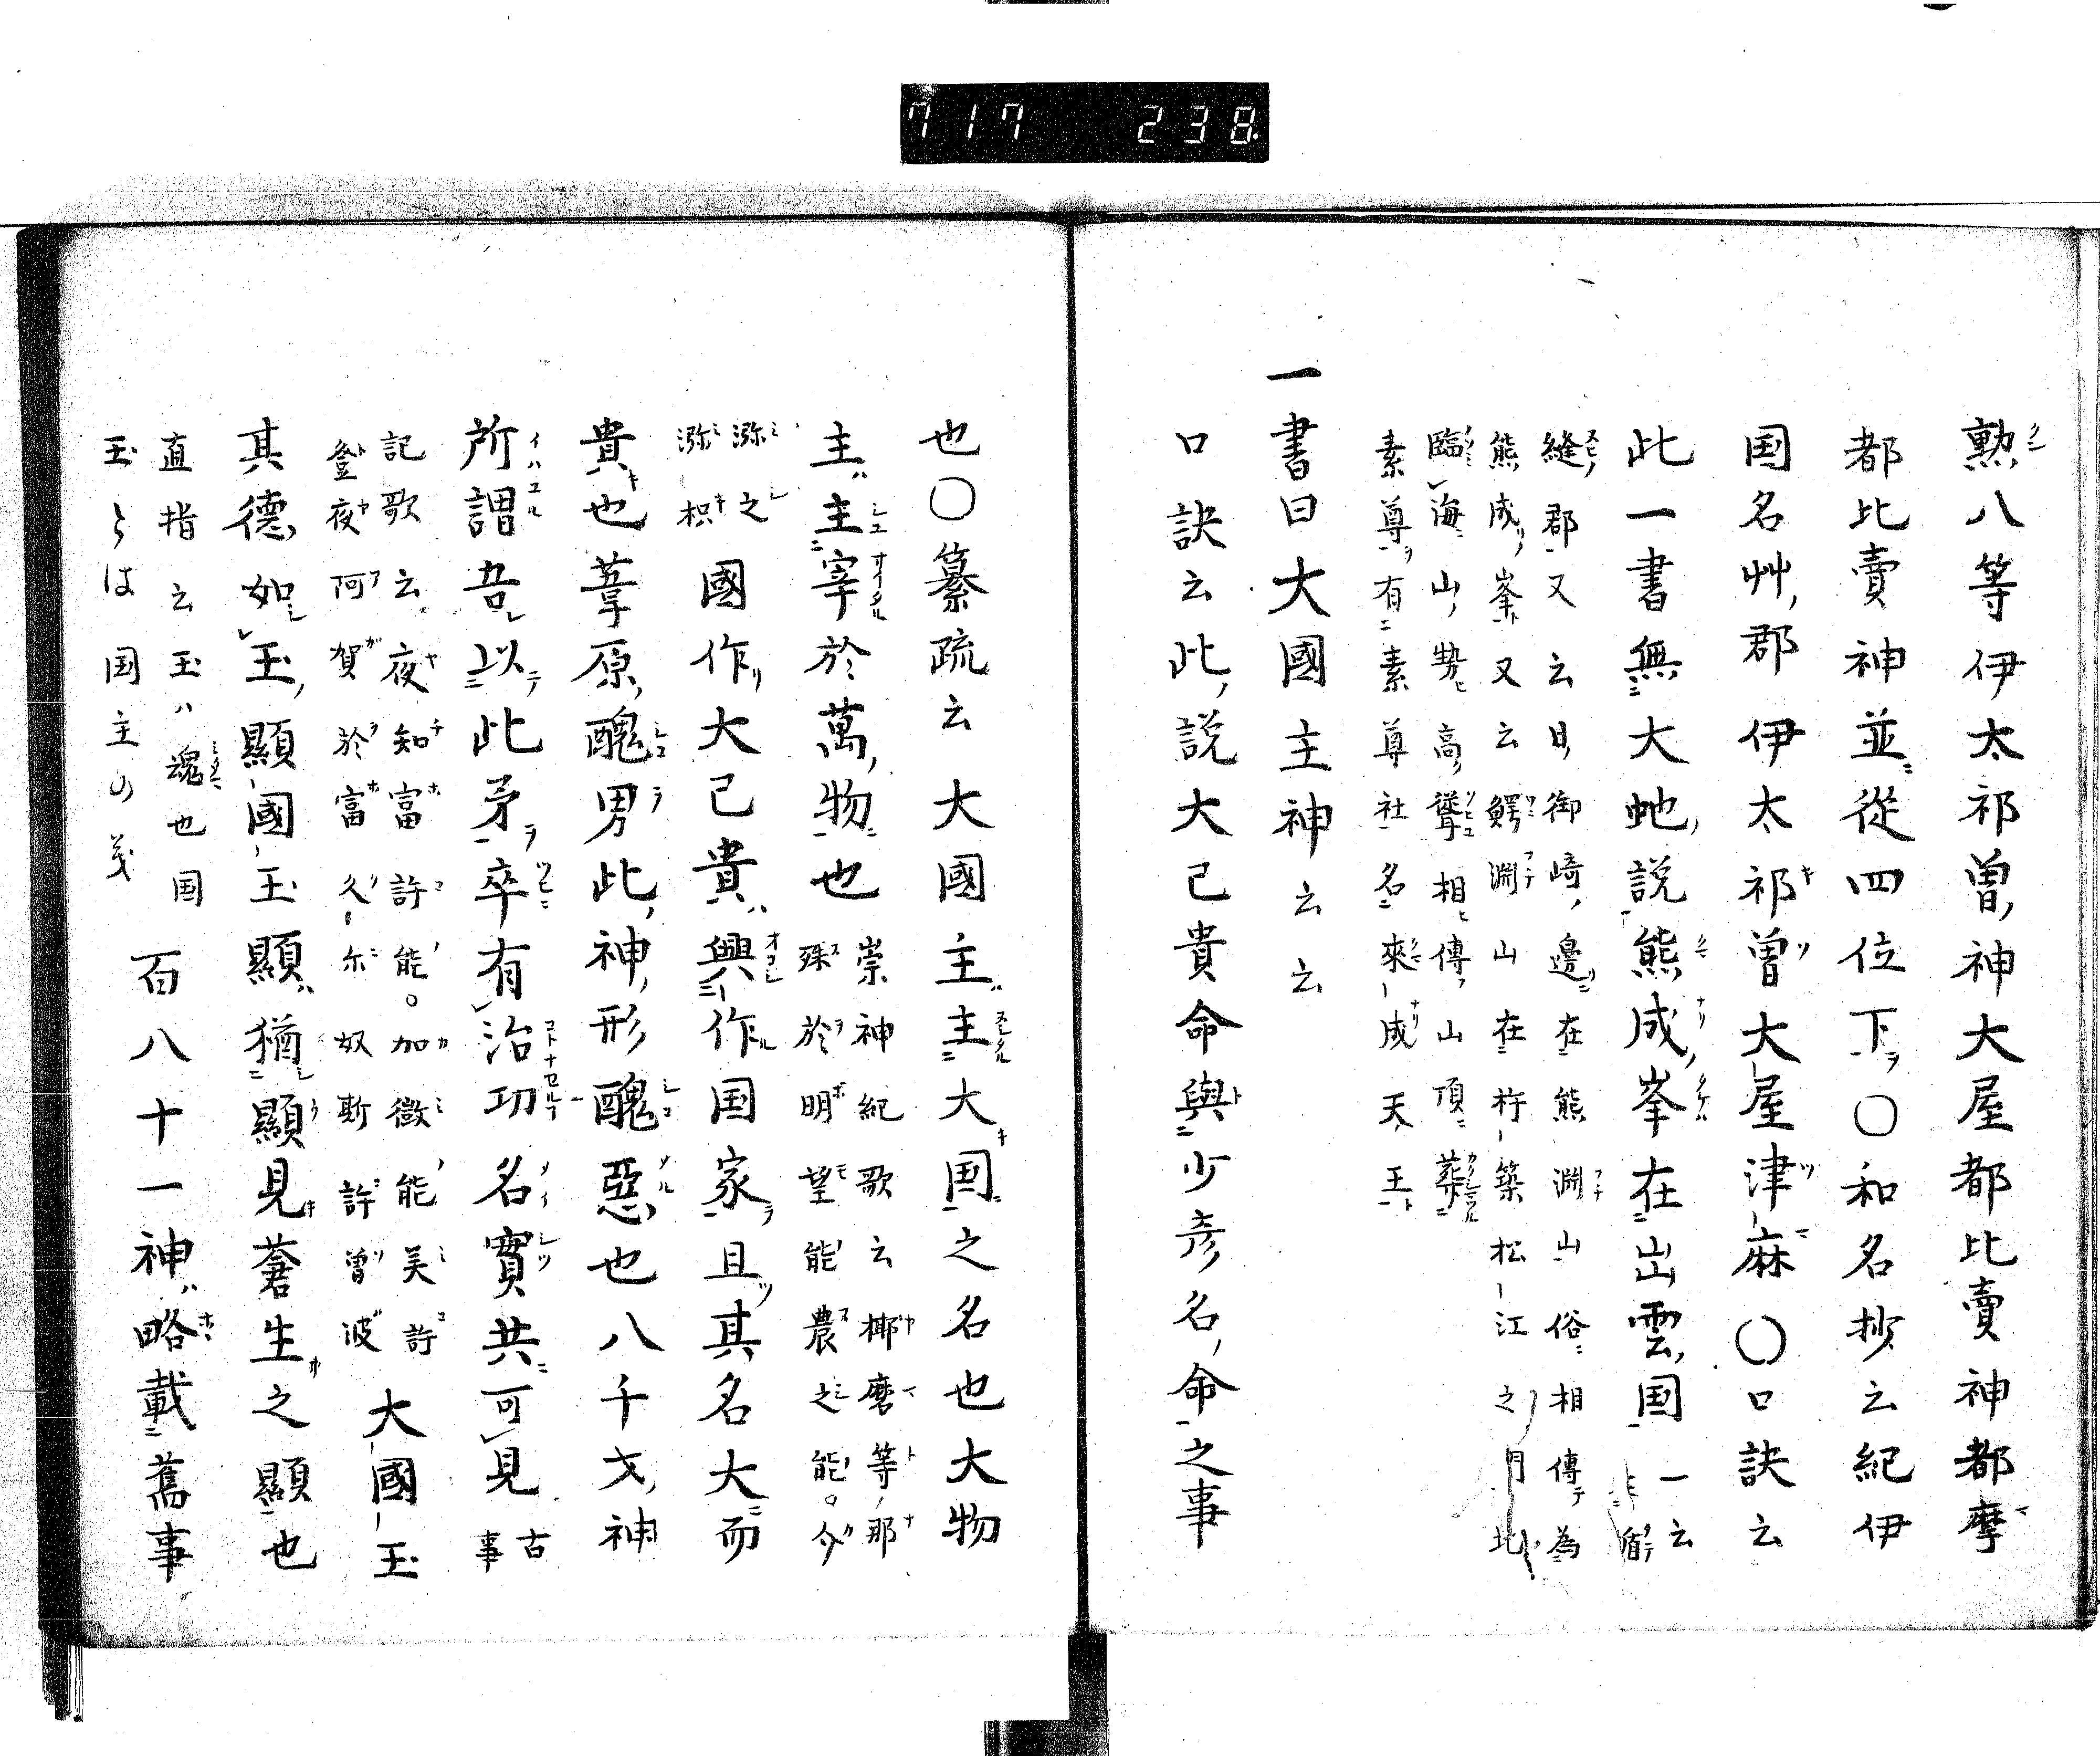 717 238
勲八等伊太祁曽神大屋都比賣神都摩
都比賣神並從四位下〇和名抄云紀伊
国名艸郡伊太祁曽大屋津麻〇口訣云
此一書無大虵説熊成峯在出雲国一云
縫郡又云日御﨑邊在熊淵山俗相傳為
熊成峯又云鰐淵山在杵築松江之
臨海山勢高聳相傳山頂葬
素尊有素尊社名來成天王
一書曰大國主神云云
口訣云此説大己貴命與少彦名命之事
也〇纂疏云大國主主大国之名也大物
主主宰於萬物也崇神紀歌云椰磨等那
殊於明望能農之能介
瀰之
瀰枳國作大己貴興作国家且其名大而
貴也葦原醜男此神形醜惡也八千戈神
所謂吾以此矛卒有治功名實共可見古
事
記歌云夜知富許能加微能美許
登夜阿賀於富久尓奴斯許曽波大國玉
其德如玉顯國玉顯猶顯見蒼生之顯也
直指云玉ハ魂也国
玉とは国主の義百八十一神略載舊事